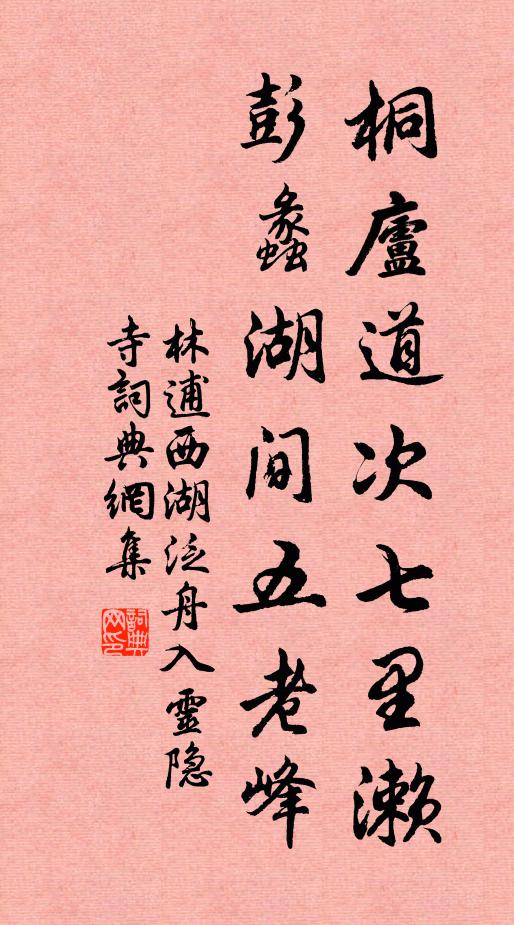 桐廬道次七里瀨
彭蠡湖間五老峰
林逋西湖泛舟入靈隐
寺詞典網集
詞典
网印